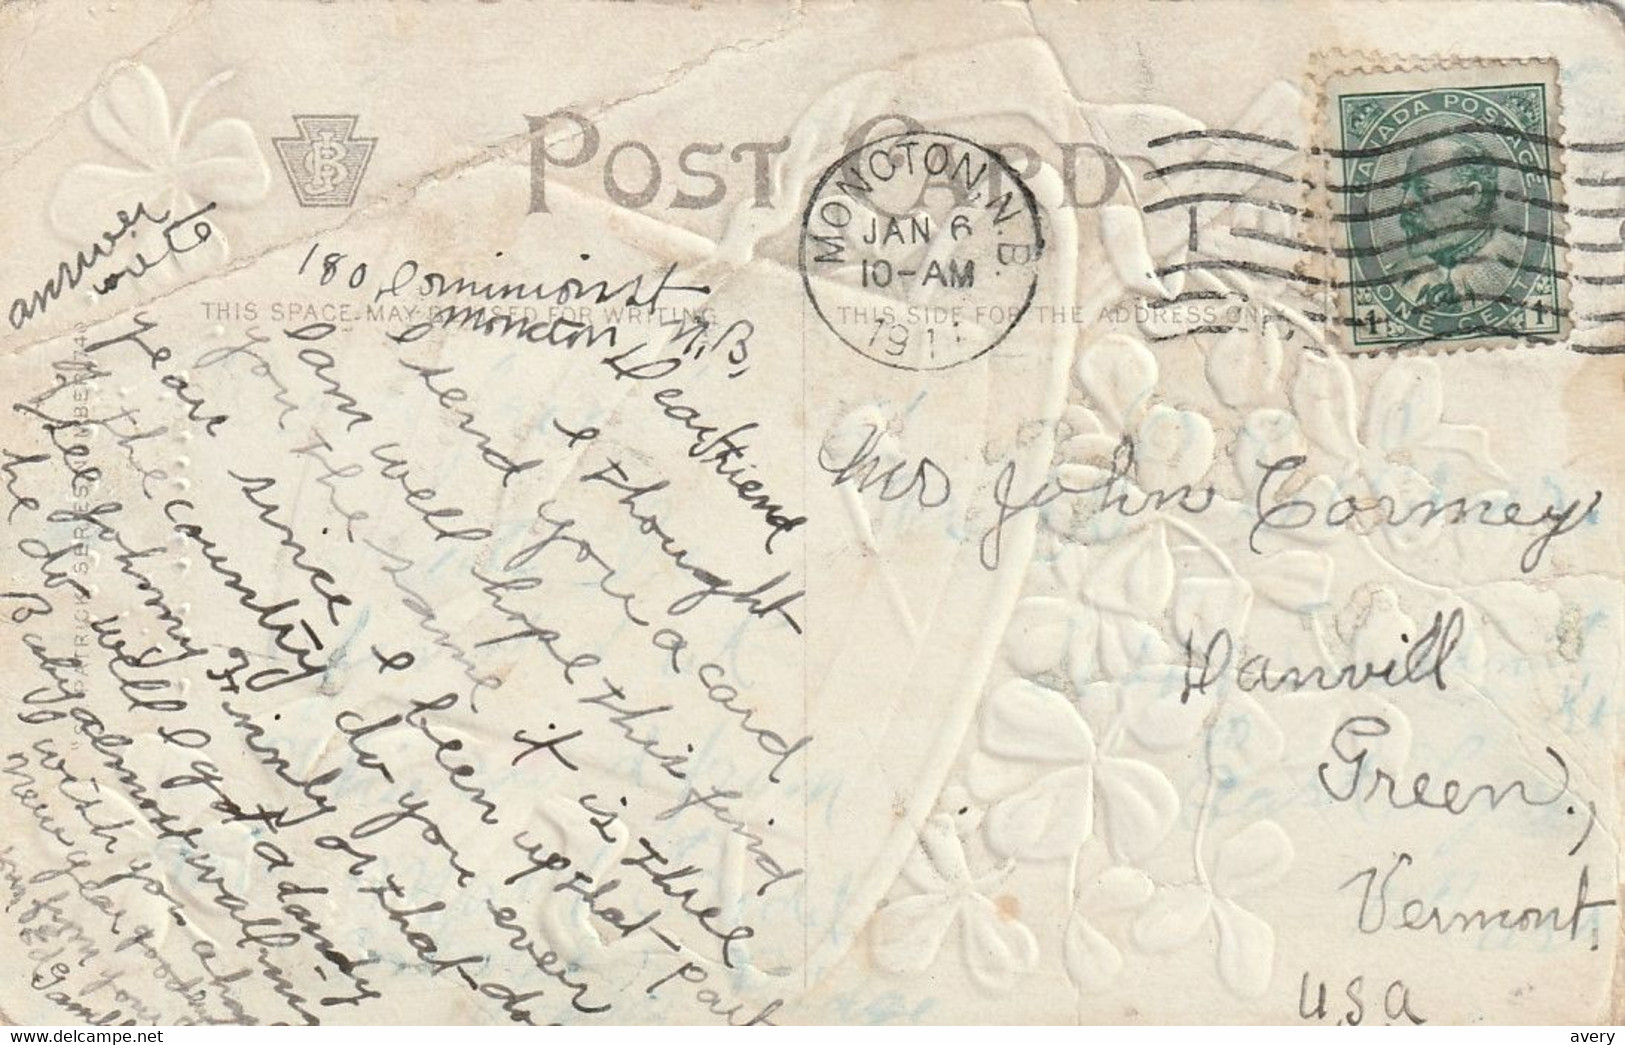 POST CARD
THIS SPACE MAY BE USED FOR WRITING
THIS SIDE FOR THE ADDRESS ONLY
MONCTON, N.B.
JAN 6
10-AM
1911
CANADA POSTAGE
ONE CENT
1 1
answer
180 Dominion st
Moncton N.B.
Dear friend
I thought
I send you a card
I am well hope this find
you the same it is three
year since I been up that part
of the country do you ever
see johnny Finnly or that
he do well I got a dandy
Baby almost walking
I wish you a hap
new year good
from your
Mrs John Cormey
Danvill
Green,
Vermont.
U.S.A
avery